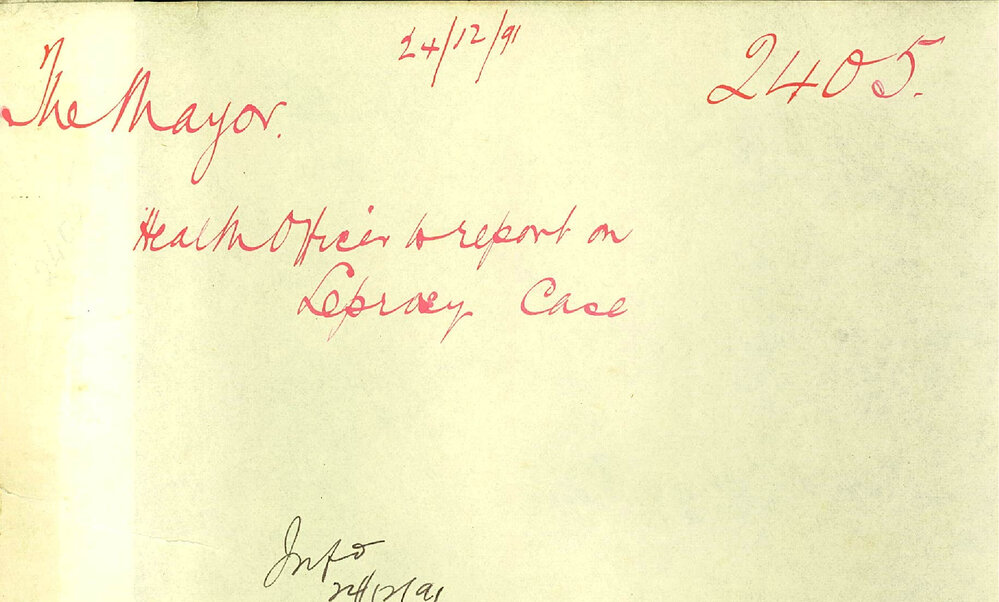 24/12/91
2405.
The Mayor.
Health Officer to report on
Leprosy Case
Info
24/12/91